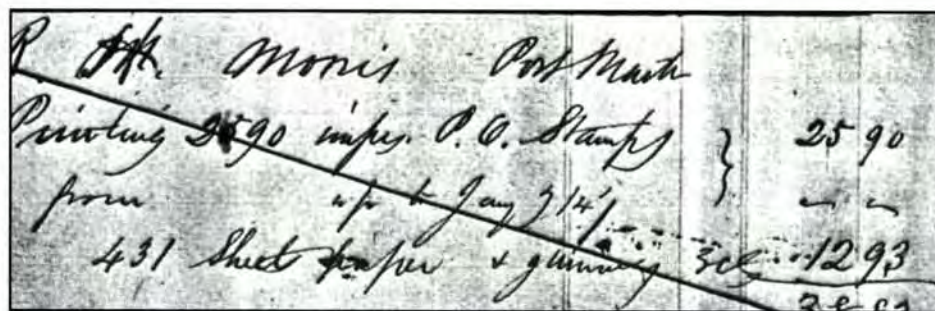 R. Morris Post Mastr
Printing 2590 imps. P. O. Stamps } 25 90
from up to Jany 14
431 Sheets paper & gumming 3cts 12 93
38 83